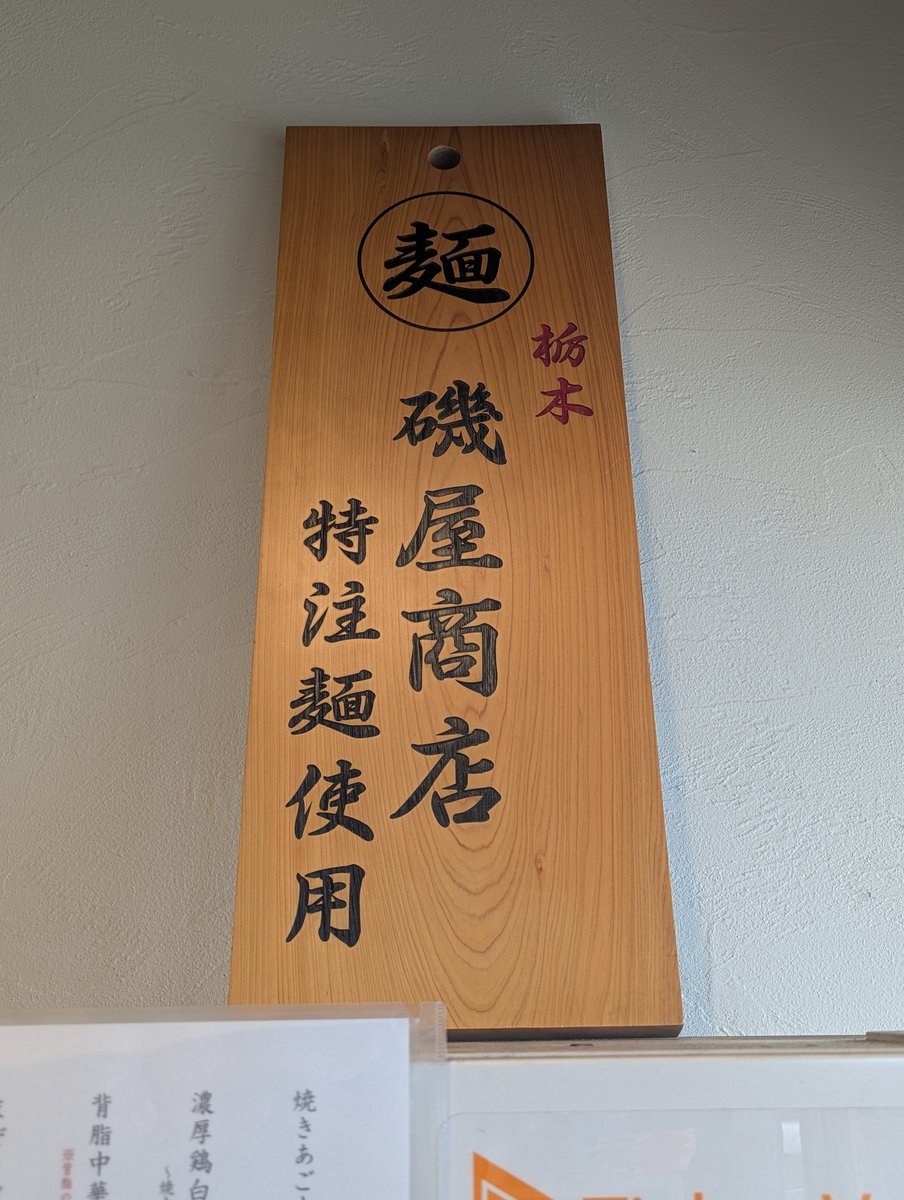 麺
栃木
磯屋商店
特注麺使用
焼きあご
濃厚鶏白
～焼
背脂中華